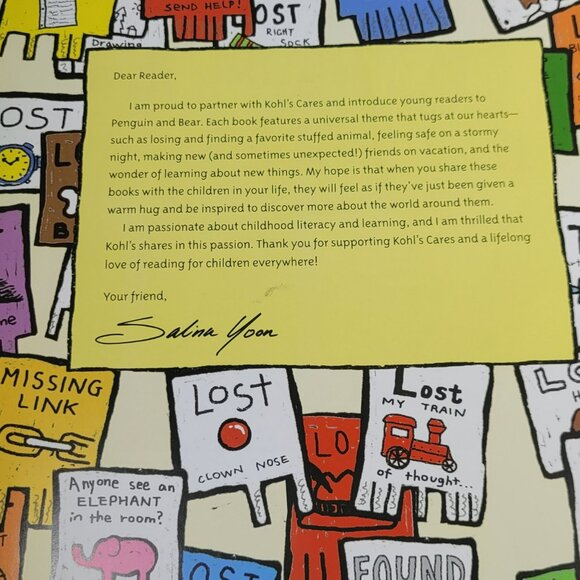 SEND HELP!
LOST
RIGHT
SOCK
Drawing
Dear Reader,
I am proud to partner with Kohl's Cares and introduce young readers to
Penguin and Bear. Each book features a universal theme that tugs at our hearts—
such as losing and finding a favorite stuffed animal, feeling safe on a stormy
night, making new (and sometimes unexpected!) friends on vacation, and the
wonder of learning about new things. My hope is that when you share these
books with the children in your life, they will feel as if they've just been given a
warm hug and be inspired to discover more about the world around them.
I am passionate about childhood literacy and learning, and I am thrilled that
Kohl's shares in this passion. Thank you for supporting Kohl's Cares and a lifelong
love of reading for children everywhere!
Your friend,
Salina Yoon
OST
MISSING
LINK
LOST
CLOWN NOSE
LO
Lost
MY TRAIN
of thought...
Anyone see an
ELEPHANT
in the room?
OST
FOUND